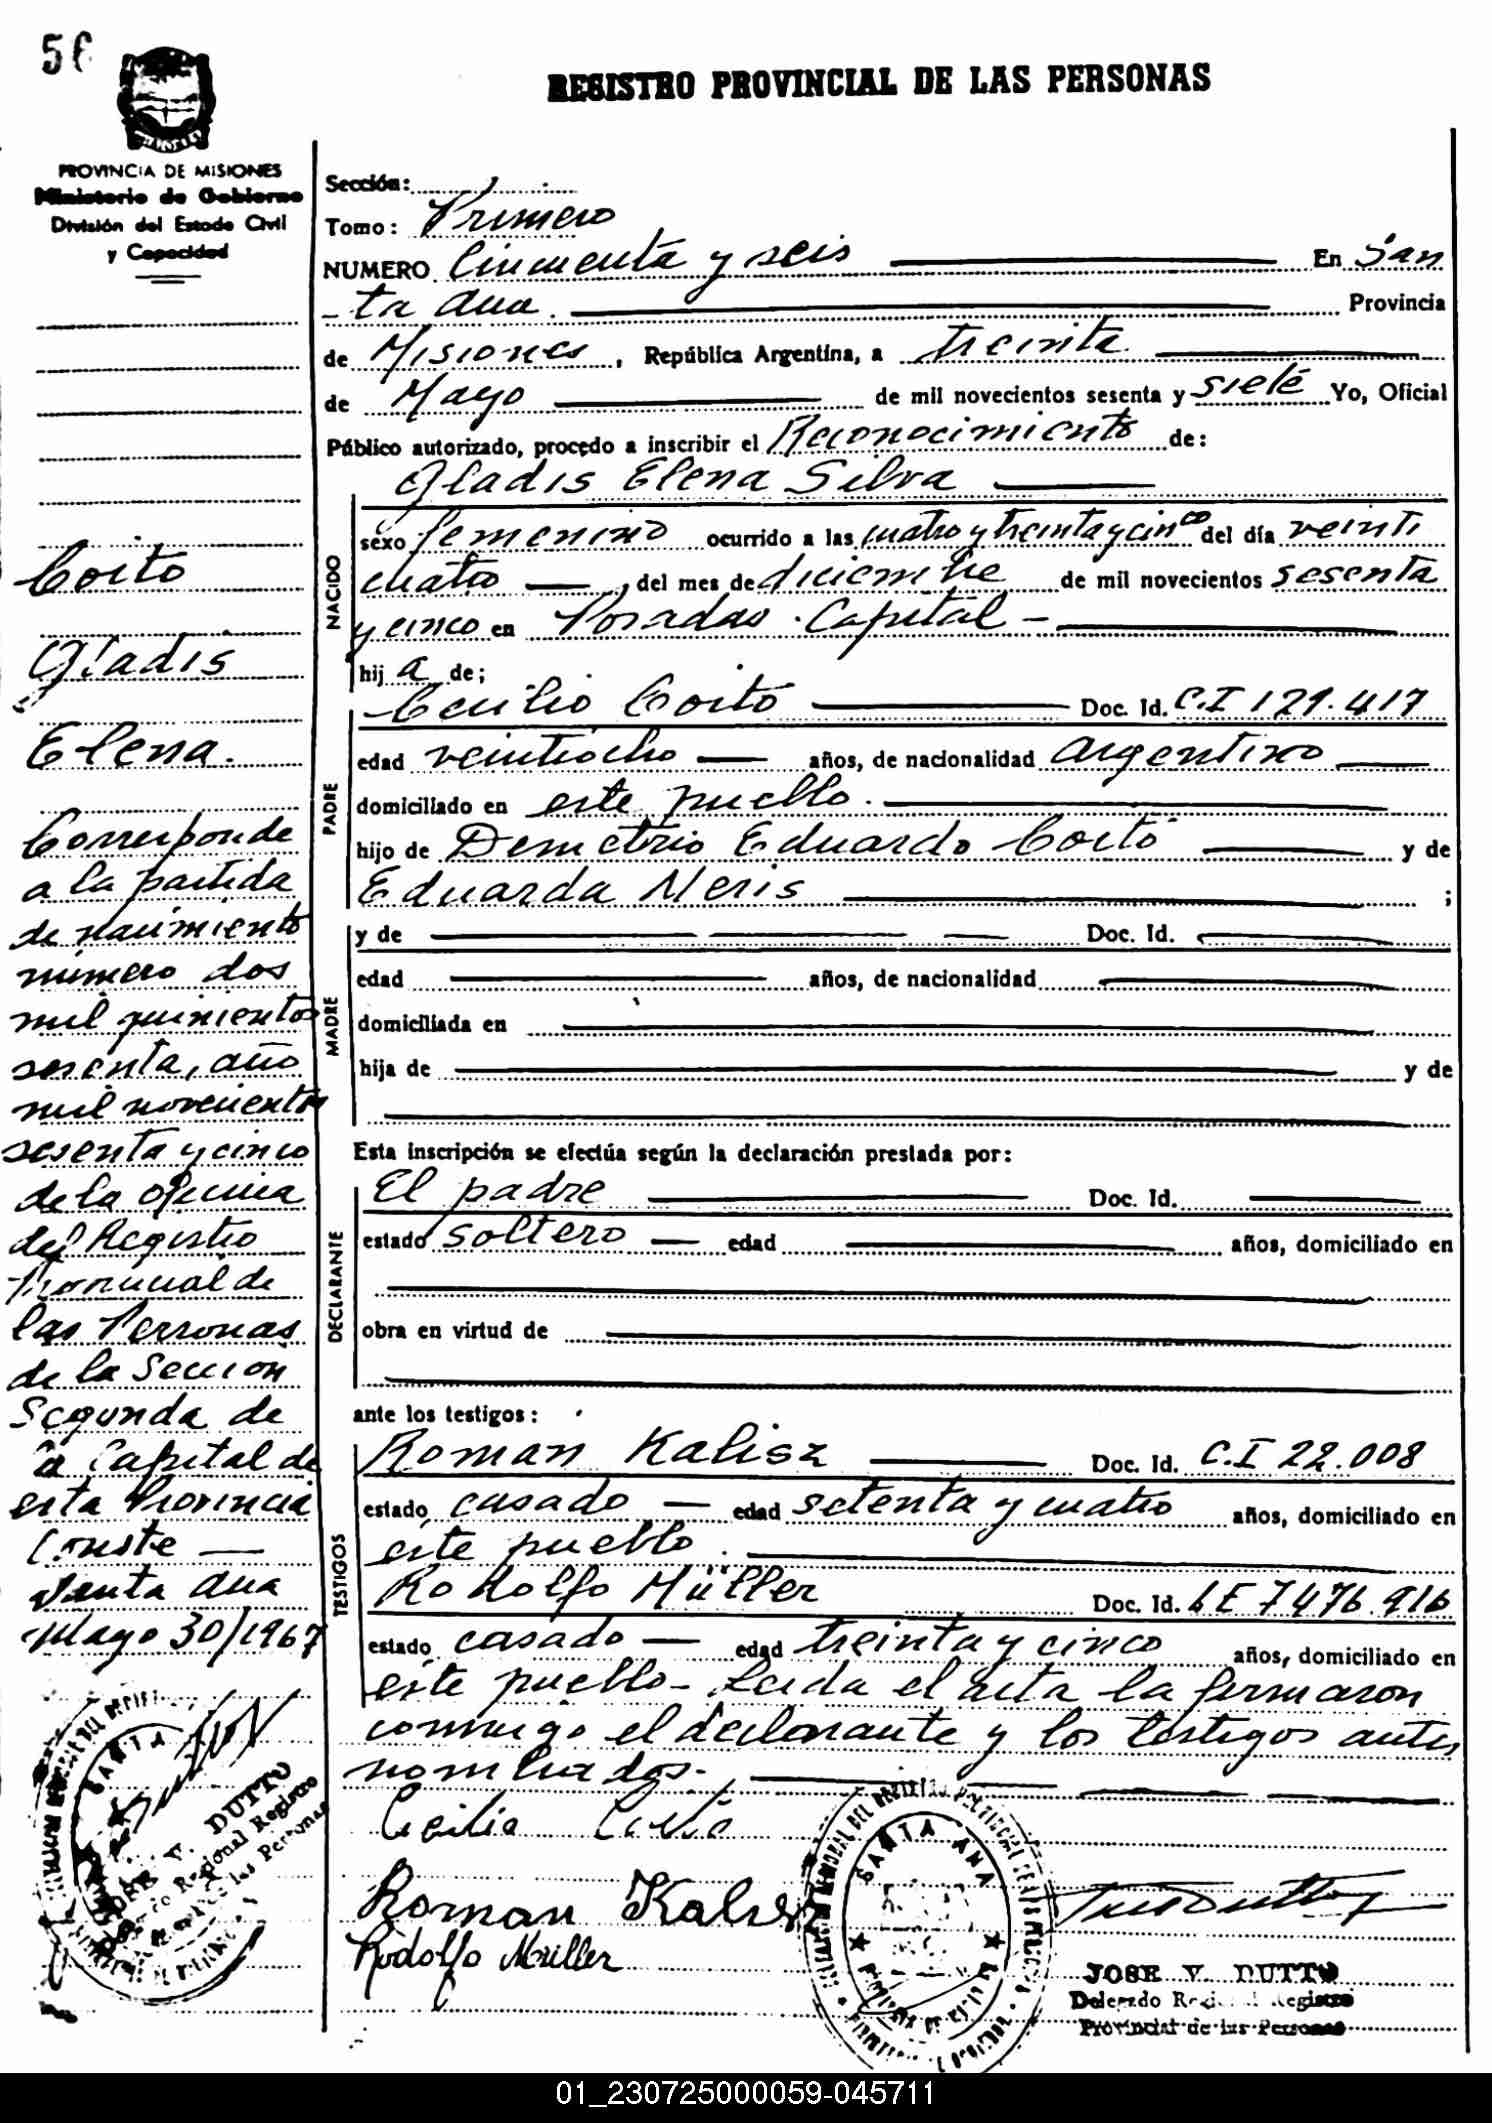 56
REGISTRO PROVINCIAL DE LAS PERSONAS
PROVINCIA DE MISIONES
Ministerio de Gobierno
División del Estado Civil
y Capacidad
Coito
Gladis
Elena.
Corresponde
a la partida
de nacimiento
número dos
mil quinientos
sesenta, año
mil novecientos
sesenta y cinco
de la oficina
del Registro
Provincial de
las Personas
de la Sección
Segunda de
la Capital de
esta Provincia
Conste —
Santa Ana
Mayo 30/1967
SANTA
JOSE V. DUTTO
Delegado Regional Registro
Provincial de las Personas
Sección:
Tomo: Primero
NUMERO Cincuenta y seis En San
ta Ana. Provincia
de Misiones, República Argentina, a treinta
de Mayo de mil novecientos sesenta y siete Yo, Oficial
Público autorizado, procedo a inscribir el Reconocimiento de:
Gladis Elena Silva
NACIDO
sexo femenino ocurrido a las cuatro y treinta y cinco del día veinti
cuatro —, del mes de diciembre de mil novecientos sesenta
y cinco en Posadas. Capital —
hija de;
PADRE
Cecilio Coito Doc. Id. C.I 129.417
edad veintiocho — años, de nacionalidad Argentino
domiciliado en este pueblo.
hijo de Demetrio Eduardo Coito y de
Eduarda Neris ;
MADRE
y de Doc. Id.
edad años, de nacionalidad
domiciliada en
hija de y de
Esta inscripción se efectúa según la declaración prestada por:
DECLARANTE
El padre Doc. Id.
estado soltero — edad años, domiciliado en
obra en virtud de
ante los testigos:
TESTIGOS
Roman Kalisz Doc. Id. C.I 22.008
estado casado — edad setenta y cuatro años, domiciliado en
este pueblo.
Rodolfo Müller Doc. Id. LE 7476.916
estado casado — edad treinta y cinco años, domiciliado en
este pueblo - Leida el acta la firmaron
conmigo el declarante y los testigos antes
nombrados.
Cecilio Coito
Roman Kalisz
Rodolfo Müller
SANTA ANA
JOSE V. DUTTO
Delegado Regional Registro
Provincial de las Personas
01_230725000059-045711